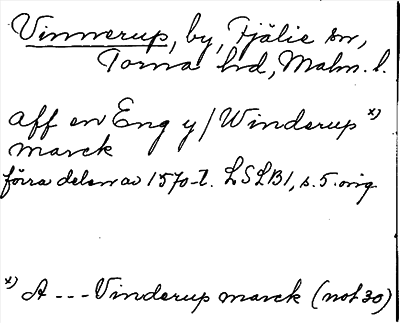 Vinnerup, by, Fjälie sn,
Torna hd, Malm. l.
aff en Eng y / Winderup x)
marck
förra delen av 1570-t. LSLB1, s. 5. orig.
x) A --- Vinderup marck (not 30)